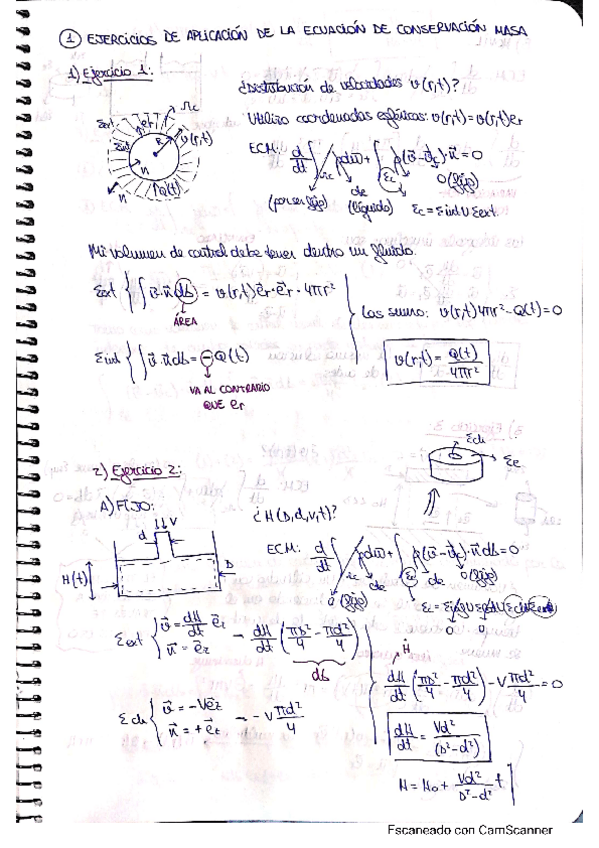 1 EJERCICIOS DE APLICACIÓN DE LA ECUACIÓN DE CONSERVACIÓN MASA
1) Ejercicio 1:
¿Distribución de velocidades v(r,t)?
Utilizo coordenadas esféricas: v(r,t)=v(r,t)er
Σext er Ωc v(r,t)
Σint R
n n Q(t)
ECM: d/dt ∫Ωc ρdω + ∫Σc ρ(v̄-v̄c)·n̄ = 0
0 (fijo)
(por ser fijo) cte (líquido) Σc = Σint ∪ Σext
Mi volumen de control debe tener dentro un fluido.
Σext { ∫ v̄·n̄ dσ = v(r,t) e⃗r · e⃗r · 4πr²
ÁREA
Σint { ∫ v̄·n̄ dσ = -Q(t)
VA AL CONTRARIO
QUE er
Las sumo: v(r,t)4πr² - Q(t) = 0
v(r,t) = Q(t)/4πr²
2) Ejercicio 2:
Σch
Σe
A) FIJO:
¿H(D,d,v,t)?
V
d
H(t)
D
ECM: d/dt ∫Ωc ρdω + ∫Σc ρ(v̄-v̄c)·n̄ dσ = 0
0 (fijo) cte cte 0 (fijo)
Σext { v̄ = dH/dt e⃗z
n̄ = e⃗z
→ dH/dt (πD²/4 - πd²/4)
dσ
Σch { v̄ = -V e⃗z
n̄ = +e⃗z
→ -V πd²/4
Ḣ
dH/dt (πD²/4 - πd²/4) - V πd²/4 = 0
dH/dt = Vd²/(D²-d²)
H = H₀ + Vd²/D²-d² t
Escaneado con CamScanner